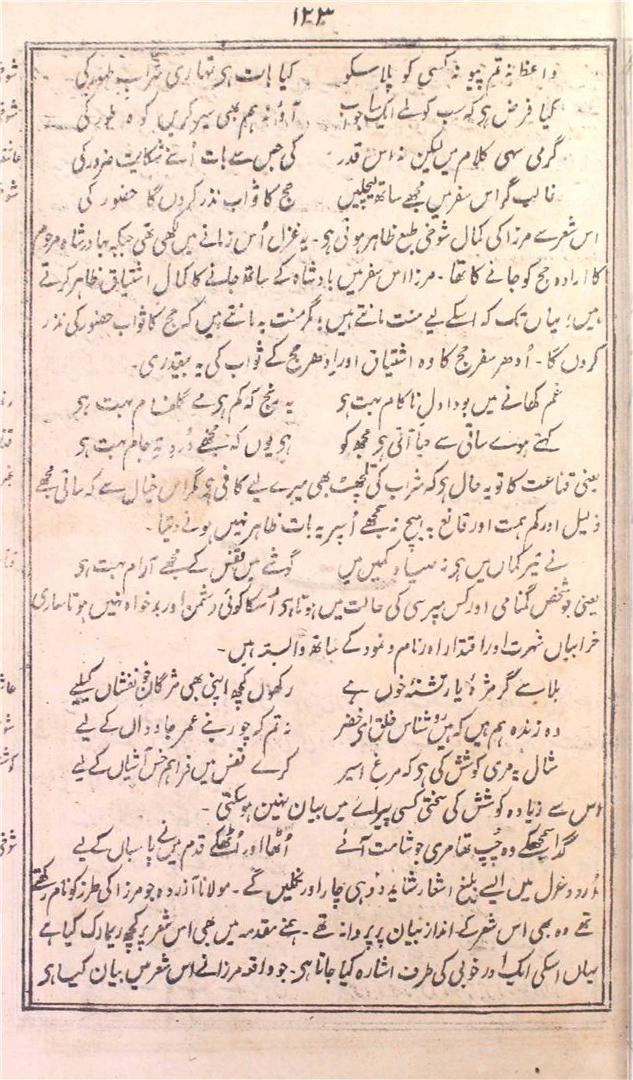 ۱۲۳
واعظ نہ تم پیو نہ کسی کو پلا سکو کیا بات ہی تمھاری شراب طہور کی
کیا فرض ہی کہ سب کو ملے ایک سا جواب آؤ نہ ہم بھی سیر کریں کوہ طور کی
گرمی سہی کلام میں لیکن نہ اس قدر کی جس سے بات اُسنے شکایت ضرور کی
غالب گر اس سفر میں مجھے ساتھ لیچلیں حج کا ثواب نذر کروں گا حضور کی
اس شعر سے مرزا کی کمال شوخی طبع ظاہر ہوتی ہی۔ یہ غزل اُس زمانے میں لکھی تھی جبکہ بہادر شاہ مرحوم
کا ارادہ حج کو جانے کا تھا۔ مرزا اس سفر میں بادشاہ کے ساتھ جانے کا کمال اشتیاق ظاہر کرتے
ہیں؛ یہاں تک کہ اسکے لیے منت مانتے ہیں؛ مگر منت یہ مانتے ہیں کہ حج کا ثواب حضور کی نذر
کروں گا۔ اُدھر سفر حج کا وہ اشتیاق اور اِدھر حج کے ثواب کی یہ بیقدری۔
غم کھانے میں بودا دل ناکام بہت ہی یہ رنج کہ کم ہی مے گلفام بہت ہی
کہتے ہوے ساقی سے حیا آتی ہی مجھ کو ہی یوں کہ مجھے دُرد تہ جام بہت ہی
یعنی قناعت کا تو یہ حال ہی کہ شراب کی تلچھٹ بھی میرے لیے کافی ہی مگر اس خیال سے کہ ساقی مجھے
ذلیل اور کم ہمت اور قانع بہ ہیچ نہ سمجھے اُسپر یہ بات ظاہر نہیں ہونے دیتا۔
نے تیر کماں میں ہی نہ صیاد کمیں میں گوشے میں قفس کے مجھے آرام بہت ہی
یعنی جو شخص گمنامی اور کس مپرسی کی حالت میں ہوتا ہی اُسکا کوئی دشمن اور بدخواہ نہیں ہوتا ساری
خرابیاں شہرت اور اقتدار اور نام و نمود کے ساتھ وابستہ ہیں۔
بلا سے گر مژۂ یار تشنۂ خوں ہے رکھوں کچھ اپنی بھی مژگان خونفشاں کیلیے
وہ زندہ ہم ہیں کہ ہیں روشناس خلق اے خضر نہ تم کہ چور بنے عمر جاوداں کے لیے
مثال یہ مری کوشش کی ہی کہ مرغ اسیر کرے قفس میں فراہم خس آشیاں کے لیے
اس سے زیادہ کوشش کی سختی کسی پیراے میں بیان نہین ہو سکتی۔
گدا سمجھکے وہ چُپ تھا مری جو شامت آئے اُٹھا اور اُٹھکے قدم میں نے پاسباں کے لیے
اُردو غزل میں ایسے بلیغ اشعار شاید دو ہی چار اور نکلیں گے۔ مولانا آزردہ جو مرزا کی طرز کو نام رکھتے
تھے وہ بھی اس شعر کے انداز بیان پر پروانہ تھے۔ ہمنے مقدمہ میں بھی اس شعر پر کچھ ریمارک کیا ہے
یہاں اسکی ایک اور خوبی کی طرف اشارہ کیا جاتا ہی۔ جو واقعہ مرزا نے اس شعر میں بیان کیا ہی